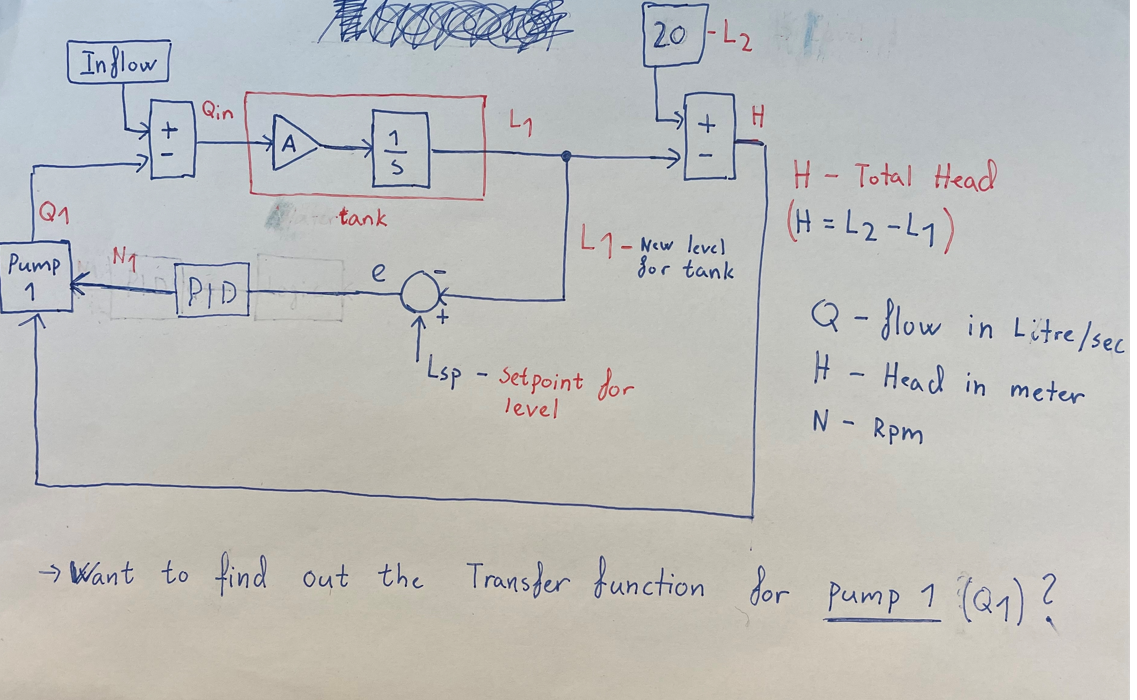 Inflow
20
-L2
+
-
Qin
A
1
S
L1
+
-
H
tank
Q1
H - Total Head
(H = L2 - L1)
L1 - New level
for tank
Pump
1
N1
PID
e
-
+
Lsp - Setpoint for
level
Q - flow in Litre/sec
H - Head in meter
N - Rpm
→ Want to find out the Transfer function for pump 1 (Q1)?